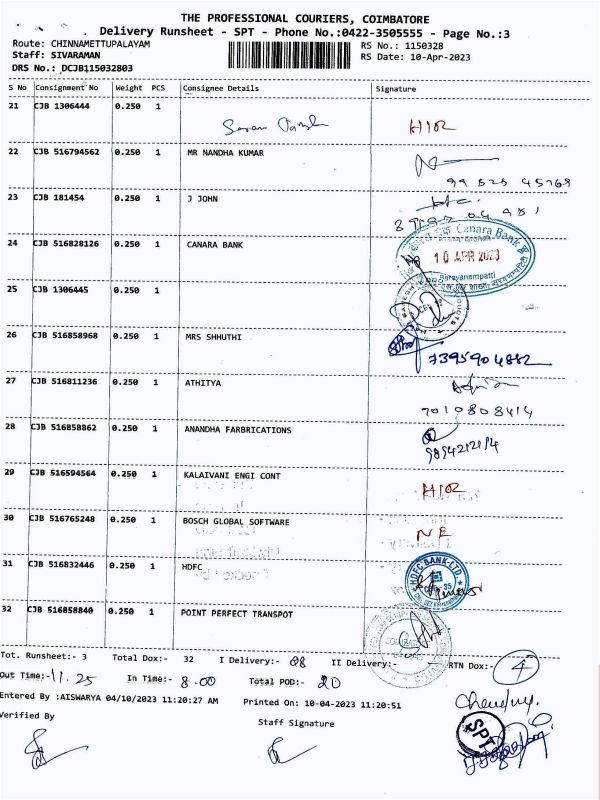 THE PROFESSIONAL COURIERS, COIMBATORE
Delivery Runsheet - SPT - Phone No.:0422-3505555 - Page No.:3
Route: CHINNAMETTUPALAYAM
RS No.: 1150328
Staff: SIVARAMAN
RS Date: 10-Apr-2023
DRS No.: DCJB115032803
S No Consignment No Weight PCS Consignee Details Signature
21 CJB 1306444 0.250 1
22 CJB 516794562 0.250 1 MR NANDHA KUMAR
99 525 45769
23 CJB 181454 0.250 1 J JOHN
24 CJB 516828126 0.250 1 CANARA BANK
Canara Bank
10 APR 2023
Saravanampatti
25 CJB 1306445 0.250 1
26 CJB 516858968 0.250 1 MRS SHHUTHI
7395904882
27 CJB 516811236 0.250 1 ATHITYA
7010808414
28 CJB 516858862 0.250 1 ANANDHA FARBRICATIONS
29 CJB 516594564 0.250 1 KALAIVANI ENGI CONT
30 CJB 516765248 0.250 1 BOSCH GLOBAL SOFTWARE
NE
31 CJB 516832446 0.250 1 HDFC
HDFC BANK LTD.
32 CJB 516858840 0.250 1 POINT PERFECT TRANSPOT
Tot. Runsheet:- 3 Total Dox:- 32 I Delivery:- 28 II Delivery:- RTN Dox:- 4
Out Time:- 11.25 In Time:- 8.00 Total POD:- 20
Entered By :AISWARYA 04/10/2023 11:20:27 AM Printed On: 10-04-2023 11:20:51
Verified By
Staff Signature
SPT